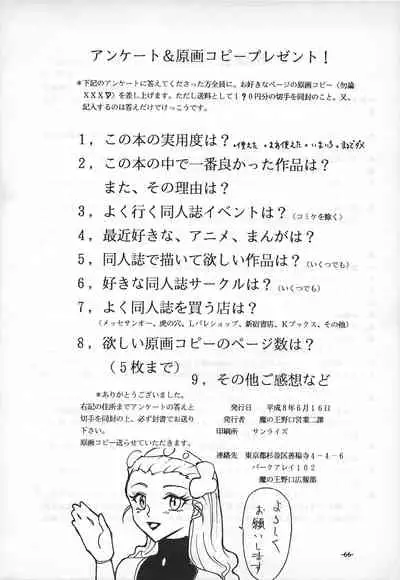 アンケート＆原画コピープレゼント！
＊下記のアンケートに答えてくださった方全員に、お好きなページの原画コピー（勿論
ＸＸＸ♡）を差し上げます。ただし送料として１９０円分の切手を同封のこと。又、
記入するのは答えだけでけっこうです。
１，この本の実用度は？ ・使えた ・まあ使えた ・いまいち ・まるでダメ
２，この本の中で一番良かった作品は？
また、その理由は？
３，よく行く同人誌イベントは？（コミケを除く）
４，最近好きな、アニメ、まんがは？
５，同人誌で描いて欲しい作品は？（いくつでも）
６，好きな同人誌サークルは？（いくつでも）
７，よく同人誌を買う店は？
（メッセサンオー、虎の穴、Ｌパレショップ、新宿書店、Ｋブックス、その他）
８，欲しい原画コピーのページ数は？
（５枚まで）
９，その他ご感想など
＊ありがとうございました。
右記の住所までアンケートの答えと
切手を同封の上、必ず封書でお送り
下さい。
原画コピー送らせていただきます。
発行日 平成８年６月１６日
発行者 魔の王野口営業二課
印刷所 サンライズ
連絡先 東京都杉並区善福寺４－４－６
パークアレイ１０２
魔の王野口広報部
よろしく
お願いします
-66-